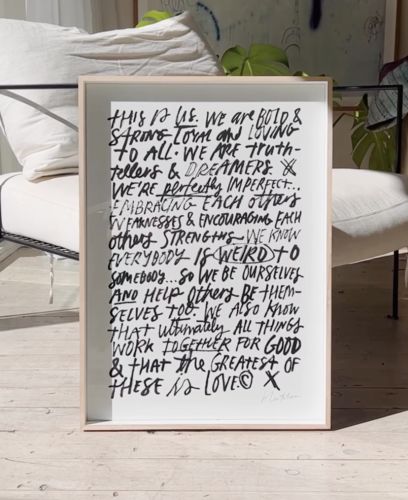 THIS IS US. WE ARE BOLD &
STRONG LOYAL AND LOVING
TO ALL. WE ARE TRUTH-
TELLERS & DREAMERS X
WE'RE perfectly IMPERFECT...
EMBRACING EACH others
WEAKNESSES & ENCOURAGING EACH
others STRENGTHS. WE KNOW
EVERYBODY IS WEIRD TO
SOMEBODY... SO WE BE OURSELVES
AND HELP Others BE THEM-
SELVES TOO. WE ALSO KNOW
THAT ultimately ALL THINGS
WORK TOGETHER FOR GOOD
& THAT THE GREATEST OF
THESE IS LOVE.© X